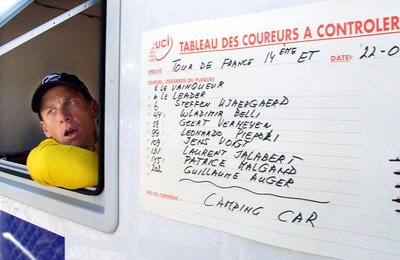 uci TABLEAU DES COUREURS A CONTROLER
EPREUVE: TOUR DE FRANCE 14 EME ET DATE: 22-0
COUREURS: DOSSARDS OU PLAQUES
* LE VAINQUEUR
* LE LEADER
6 STEFFEN KJAERGAERD
44 WLADIMIR BELLI
58 GEERT VERHEYEN
99 LEONARDO PIEPOLI
109 JENS VOIGT
131 LAURENT JALABERT
145 PATRICE HALGAND
202 GUILLAUME AUGER
LIEU DU CONTROLE: CAMPING CAR